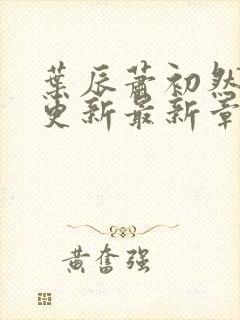 葉辰蕭初然
更新最新章
黄奮强